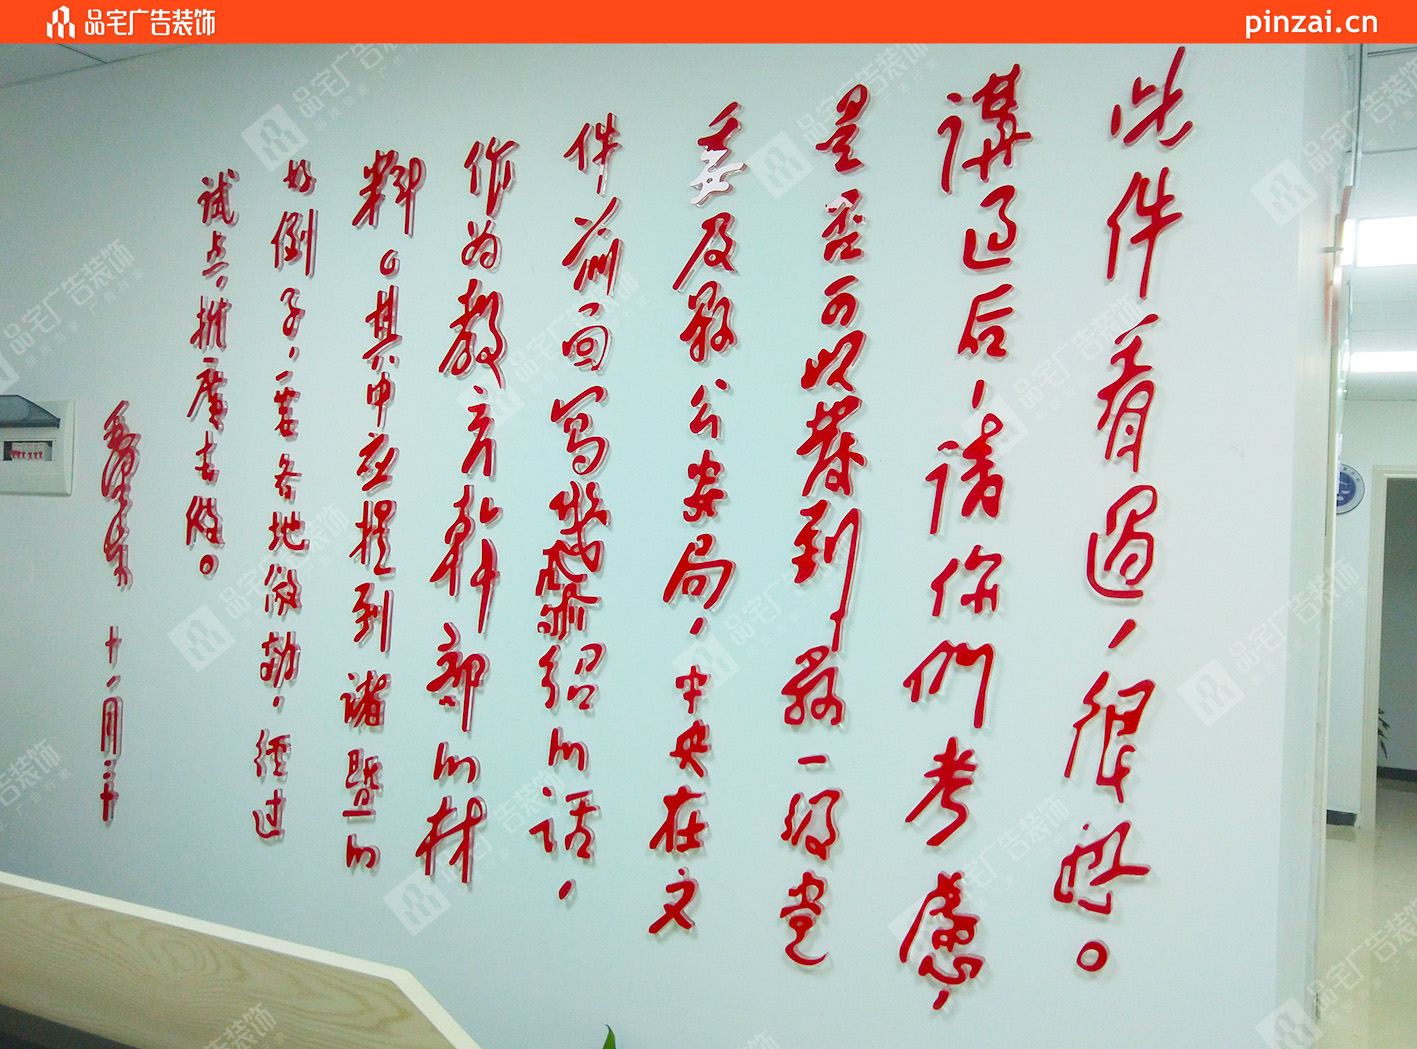 品宅广告装饰
pinzai.cn
此件看過，很好。
講过后，请你們考慮，
是否可以發到縣一級党
委及縣公安局，中央在文
件前面写幾句介绍的话，
作为教育幹部的材
料。其中应提到诸暨的
好例子，要各地倣効，經过
试点，推廣去做。
毛泽东 十一月二十